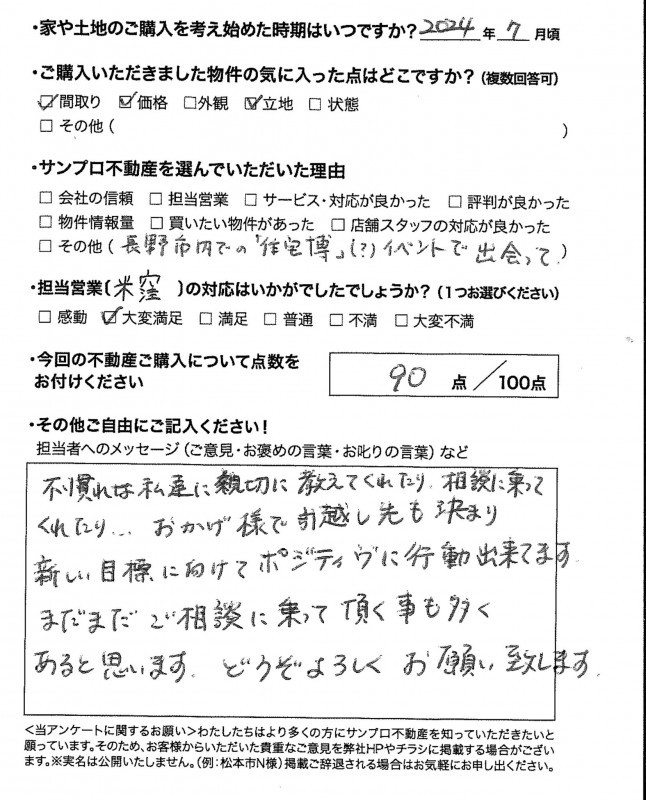 ・家や土地のご購入を考え始めた時期はいつですか? 2024 年 7 月頃
・ご購入いただきました物件の気に入った点はどこですか?(複数回答可)
☑間取り ☑価格 □外観 ☑立地 □状態
□その他( )
・サンプロ不動産を選んでいただいた理由
□会社の信頼 □担当営業 □サービス・対応が良かった □評判が良かった
□物件情報量 □買いたい物件があった □店舗スタッフの対応が良かった
□その他(長野市内での「住宅博」(?)イベントで出会って)
・担当営業〔米窪〕の対応はいかがでしたでしょうか?(1つお選びください)
□感動 ☑大変満足 □満足 □普通 □不満 □大変不満
・今回の不動産ご購入について点数を
お付けください
90 点/100点
・その他ご自由にご記入ください!
担当者へのメッセージ(ご意見・お褒めの言葉・お叱りの言葉)など
不慣れな私達に親切に教えてくれたり、相談に乗って
くれたり... おかげ様で引越し先も決まり
新しい目標に向けてポジティヴに行動出来てます
まだまだご相談に乗って頂く事も多く
あると思います。どうぞよろしくお願い致します。
<当アンケートに関するお願い>わたしたちはより多くの方にサンプロ不動産を知っていただきたいと
願っています。そのため、お客様からいただいた貴重なご意見を弊社HPやチラシに掲載する場合がござい
ます。※実名は公開いたしません。(例:松本市N様)掲載ご辞退される場合はお気軽にお申し出ください。